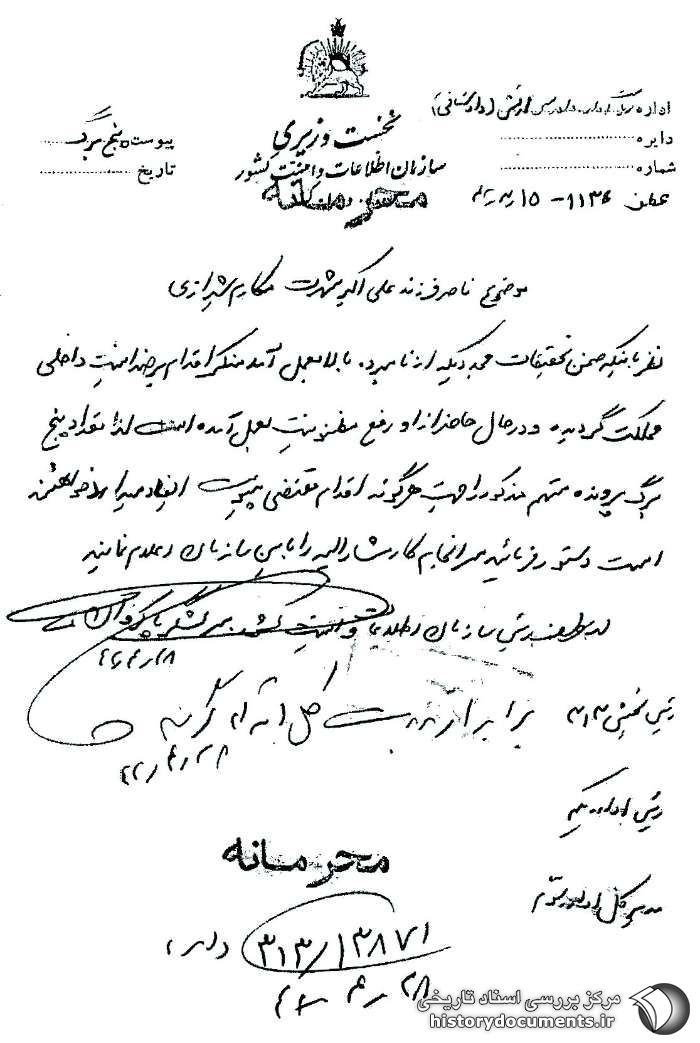 اداره دادرسی ارتش (دادستانی)
دایره
شماره
عطف ۱۱۳۶-۱۵
نخست وزیری
سازمان اطلاعات و امنیت کشور
محرمانه
پیوست پنج برگ
تاریخ
موضوع ناصر فرزند علی اکبر شهرت مکارم شیرازی
نظر باینکه ضمن تحقیقات مجددیکه از نامبرده بالا بعمل آمد منکر اقدام بر ضد امنیت داخلی
مملکت گردیده و در حال حاضر از او رفع مظنونیت بعمل آمده است لذا تعداد پنج
برگ پرونده متهم مذکور را جهت هرگونه اقدام مقتضی به پیوست ایفاد میدارد خواهشمند
است دستور فرمائید سرانجام کار مشارالیه را باین سازمان اعلام نمایند
سازمان اطلاعات و امنیت کشور سرلشگر پاکروان
رئیس بخش ۳۱۳
برابر
اقدام گردید
رئیس اداره یکم
مدیر کل اداره سوم
محرمانه
۳۱۳/۱۳۸۷۱
۲۸
مرکز بررسی اسناد تاریخی
historydocuments.ir